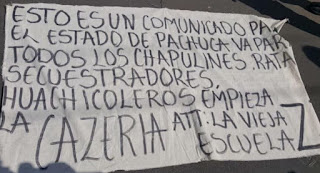 ESTO ES UN COMUNICADO PA
EL ESTADO DE PACHUCA VA PAR
TODOS LOS CHAPULINES, RATA
SECUESTRADORES,
HUACHICOLEROS EMPIEZA
LA CAZERIA ATT: LA VIEJA
ESCUELA Z